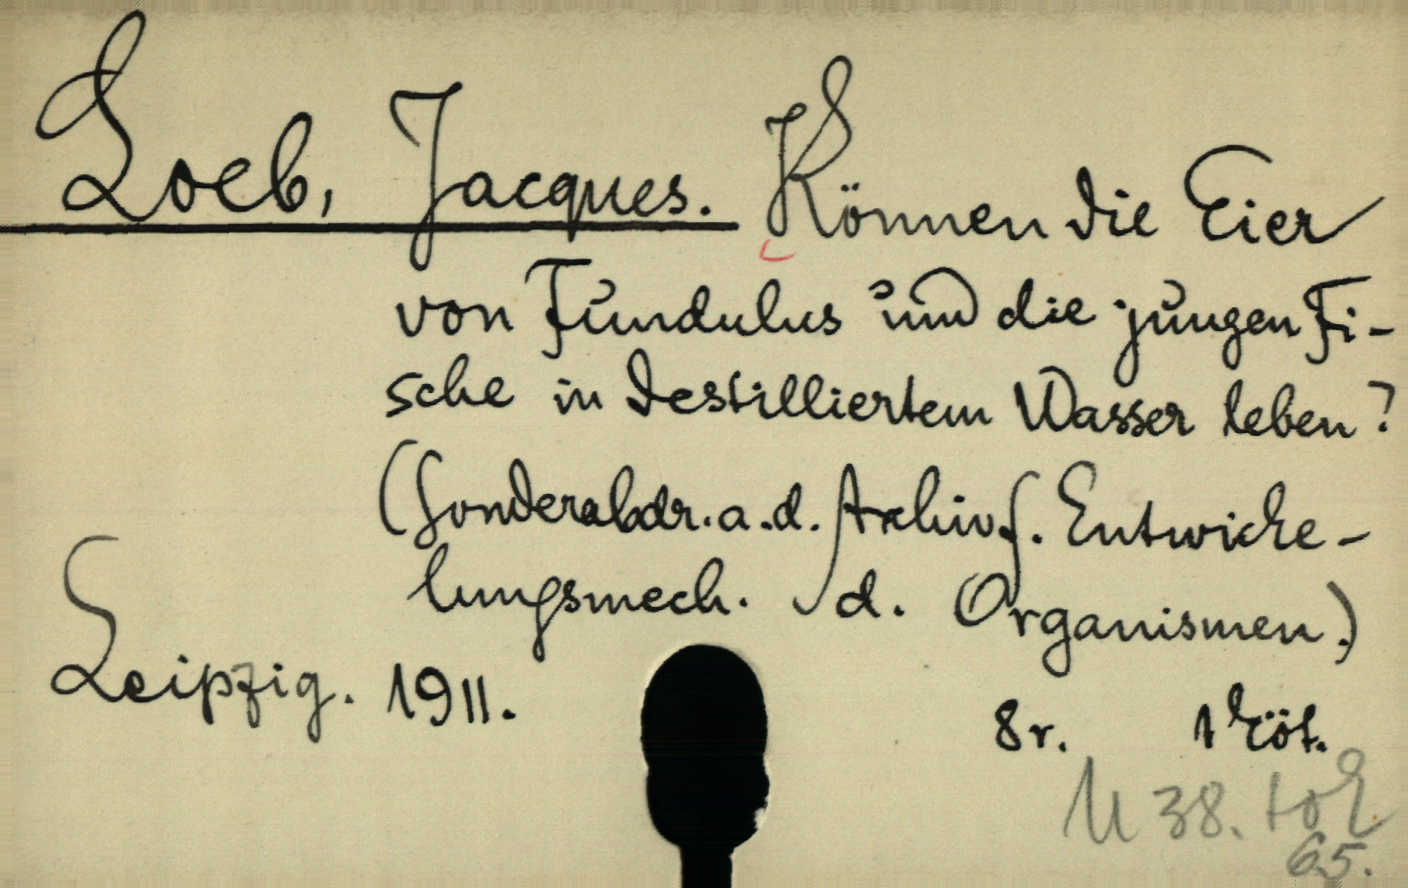 Loeb, Jacques. Können die Eier
von Fundulus und die jungen Fi-
sche in destilliertem Wasser leben?
(Sonderabdr. a. d. Archiv f. Entwicke-
lungsmech. d. Organismen.)
Leipzig. 1911.
8r. 1 köt.
U 38.
65.